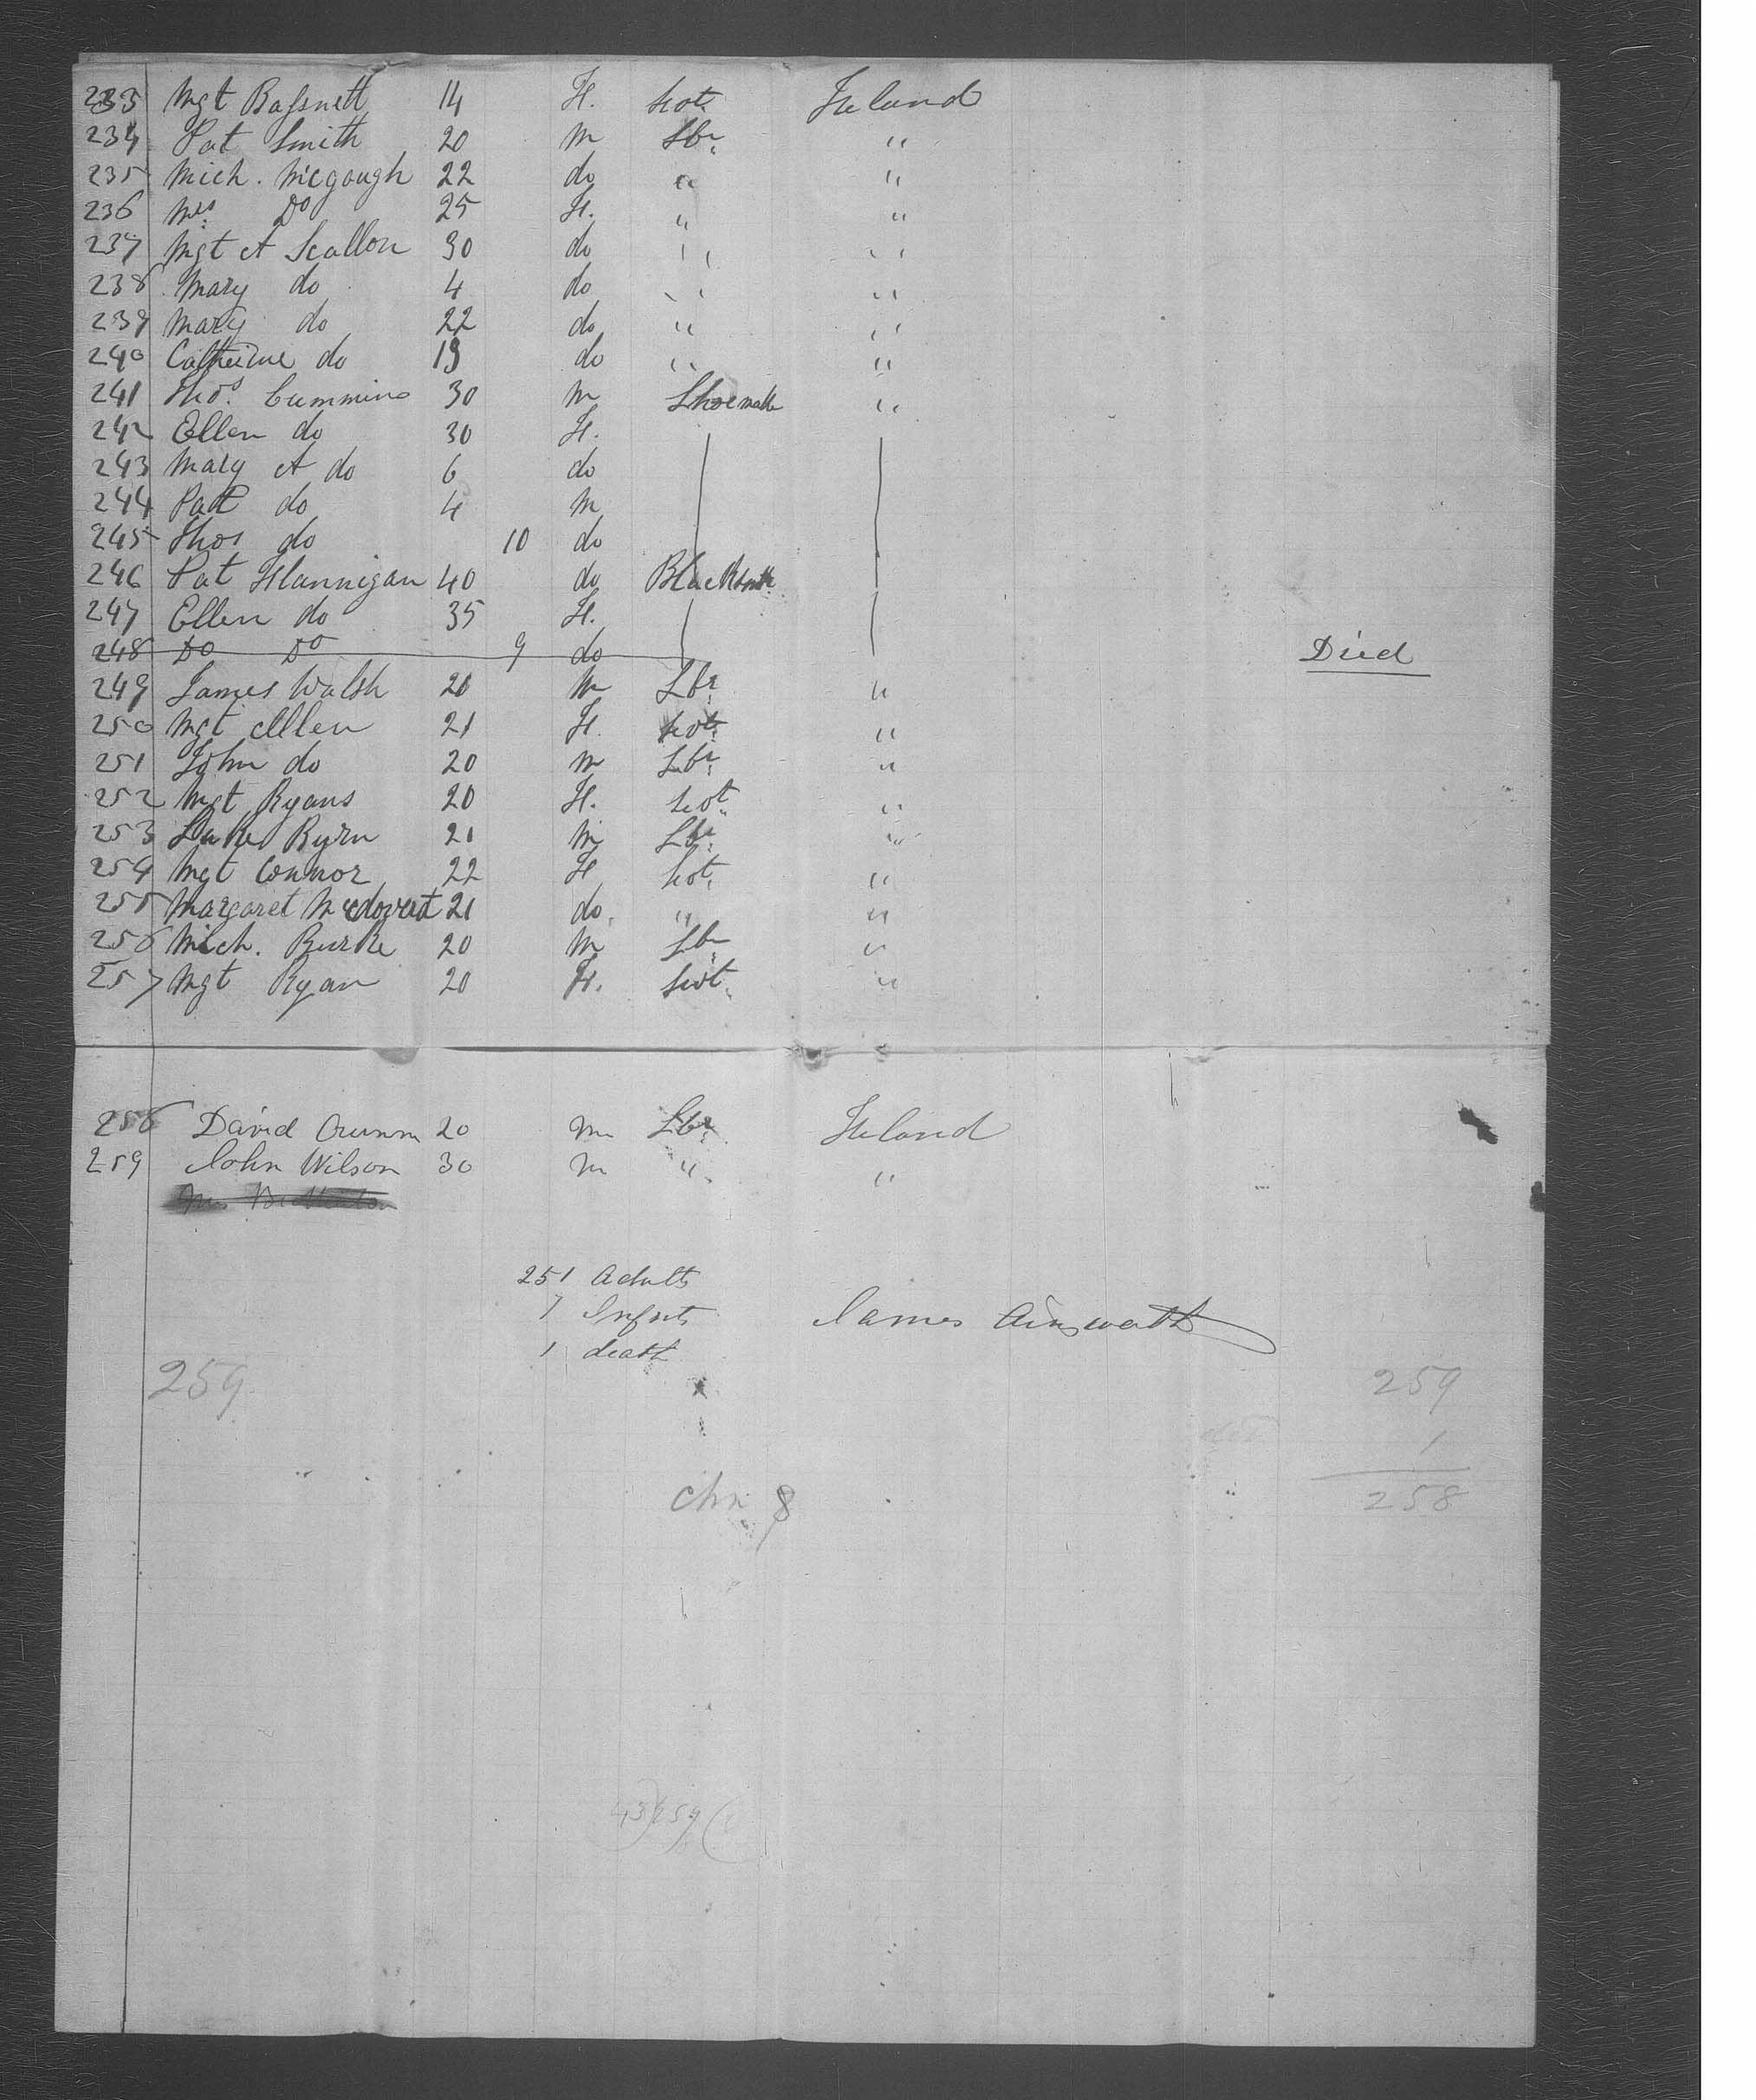 233 Mgt Bassnett 14 F. Spt. Ireland
234 Pat Smith 20 M Lbr. "
235 Mich. McGough 22 do " "
236 Mrs Do 25 F. " "
237 Mgt A Scallon 30 do " "
238 Mary do 4 do " "
239 Mary do 22 do " "
240 Catherine do 19 do " "
241 Thos. Cummins 30 M Shoemak "
242 Ellen do 30 F.
243 Mary A do 6 do
244 Pat do 4 M
245 Thos do 10 do
246 Pat Flannigan 40 do Blacksmith
247 Ellen do 35 F.
248 Do Do 9 do Died
249 James Walsh 20 M Lbr. "
250 Mgt Allen 21 F. Spt. "
251 John do 20 M Lbr. "
252 Mgt Ryans 20 F. Spt. "
253 Luke Byrn 21 M Lbr. "
254 Mgt Connor 22 F Spt. "
255 Margaret 21 do. " "
256 Mich. Burke 20 M Lbr "
257 Mgt Ryan 20 F. Spt. "
258 David 20 M Lbr. Ireland
259 John Wilson 30 M " "
251 Adults
7 Infnts James Ainsworth
1 death
259 259
1
258
Chn 8